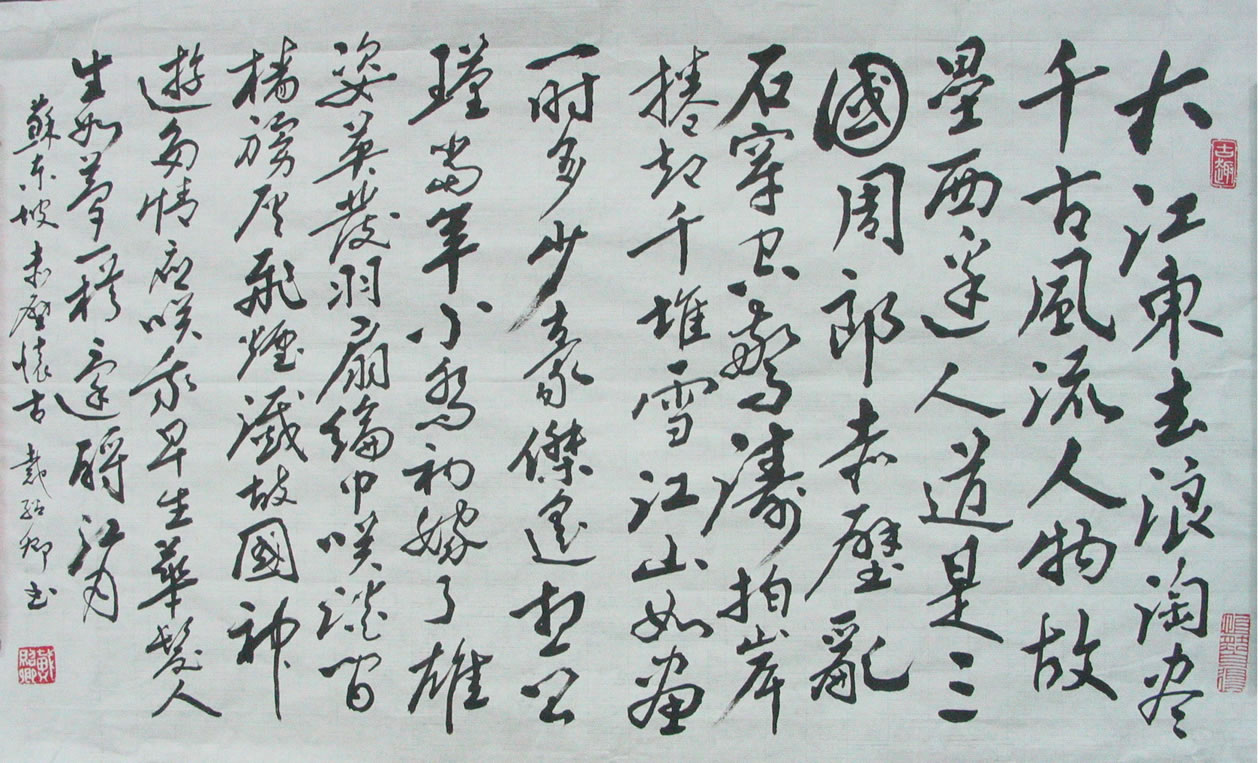 古趣
大江東去浪淘尽
千古風流人物故
壘西邊人道是三
國周郎赤壁亂
石穿空驚濤拍岸
捲起千堆雪江山如畫
一时多少豪傑遙想公
瑾當年小喬初嫁了雄
姿英發羽扇綸巾咲談間
檣櫓灰飛煙滅故國神
遊多情应咲我早生華髮人
生如夢一樽還酹江月
蘇東坡赤壁懷古 戴卿书